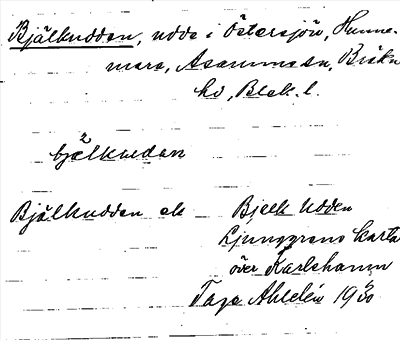 Bjälkudden, udde i Östersjön, Hunne-
mara, Asarums sn, Bräkne
hd, Blek. l.
2
bjælkudan
Bjälkudden ek Bjelk Udden
Ljunggrens karta
över Karlshamn
Tage Ahldén 1930